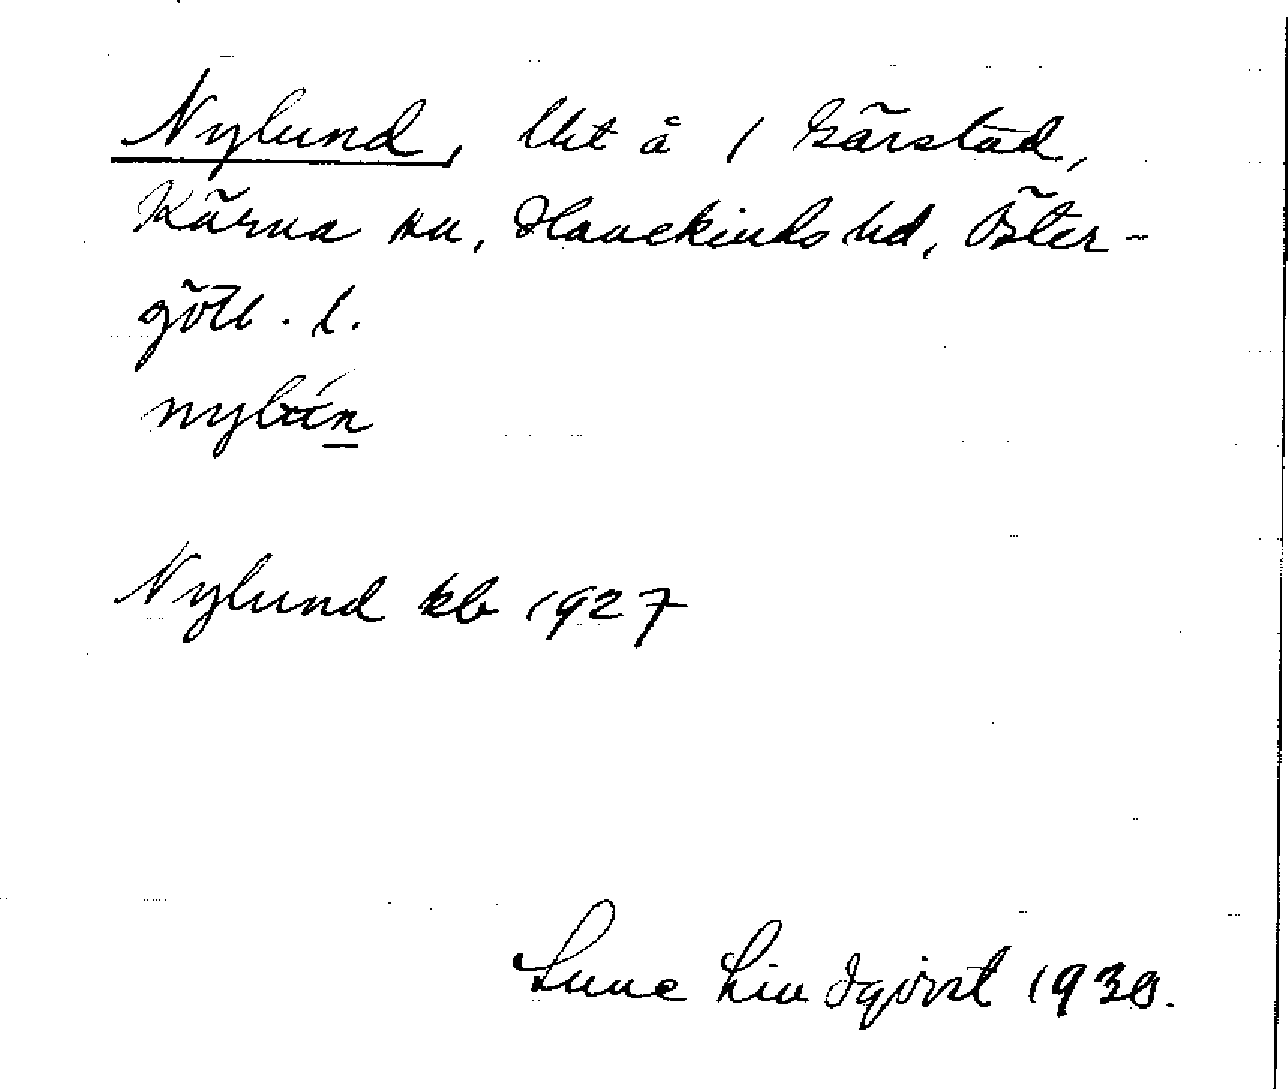 Nylund, lht å 1 Gärstad,
Kärna sn, Hanekinds hd, Öster-
götl. l.
nylún
Nylund kb 1927
Sune Lindqvist 1930.